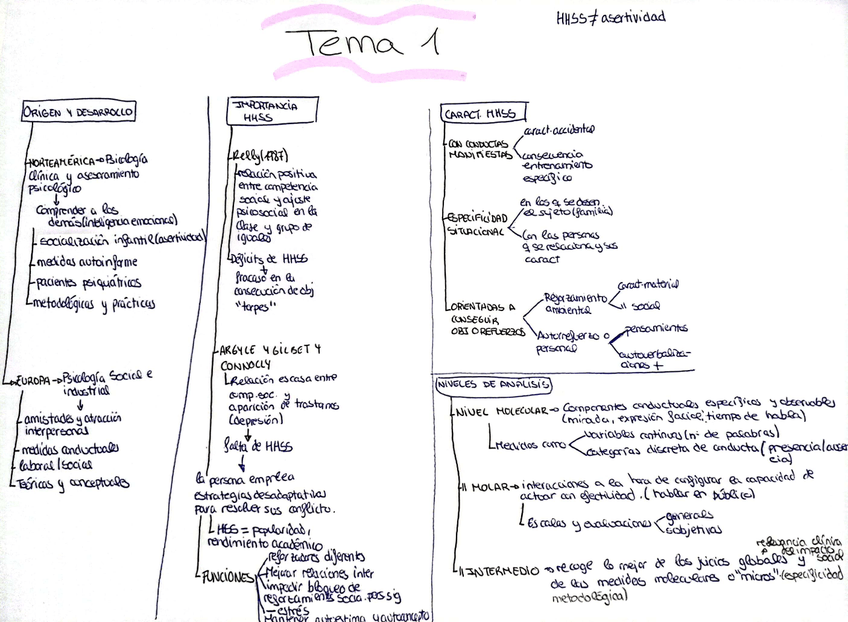 HHSS ≠ asertividad
Tema 1
ORIGEN Y DESARROLLO
NORTEAMÉRICA → Psicología
clínica y asesoramiento
psicológico
Comprender a los
demás (inteligencia emocional)
socialización infantil (asertividad)
medidas autoinforme
pacientes psiquiátricos
metodológicas y prácticas
EUROPA → Psicología Social e
industrial
amistades y atracción
interpersonal
medidas conductuales
laboral/social
Teóricas y conceptuales
IMPORTANCIA
HHSS
Kelly (1987)
relación positiva
entre competencia
social y ajuste
psicosocial en la
clase y grupo de
iguales
Déficits de HHSS
fracaso en la
consecución de obj
"torpes"
ARGYLE Y GILBET Y
CONNOLLY
Relación escasa entre
comp. soc. y
aparición de trastornos
(depresión)
falta de HHSS
la persona emplea
estrategias desadaptativas
para resolver sus conflicto.
HSS = popularidad,
rendimiento académico
FUNCIONES
reforzadores diferentes
Mejorar relaciones inter
impedir bloqueo de
reforzamiento socia. pos sig
— estrés
Mantener autoestima y autoconcepto
CARACT. HHSS
CON CONDUCTAS
MANIFIESTAS
caract. accidental
consecuencia
entrenamiento
específico
ESPECIFICIDAD
SITUACIONAL
en las q se desen
el sujeto (familia)
Con las personas
q se relaciona y sus
caract
ORIENTADAS A
CONSEGUIR
OBJ O REFUERZOS
Reforzamiento
ambiental
caract. material
" social
Autorrefuerzo o
personal
pensamientos
autoverbaliza-
ciones +
NIVELES DE ANÁLISIS
NIVEL MOLECULAR → Componentes conductuales específicos y observables
(mirada, expresión facial, tiempo de habla)
Medidos como
variables continuas (nº de palabras)
categorías discreta de conducta (presencia/ausen
cia)
" MOLAR → interacciones a la hora de configurar la capacidad de
actuar con efectividad. (hablar en público)
Escalas y evaluaciones
generales
subjetivas
relevancia clínica
del impacto
" INTERMEDIO → recoge lo mejor de los juicios globales y social
de las medidas moleculares o "micros" (especificidad
metodológica)